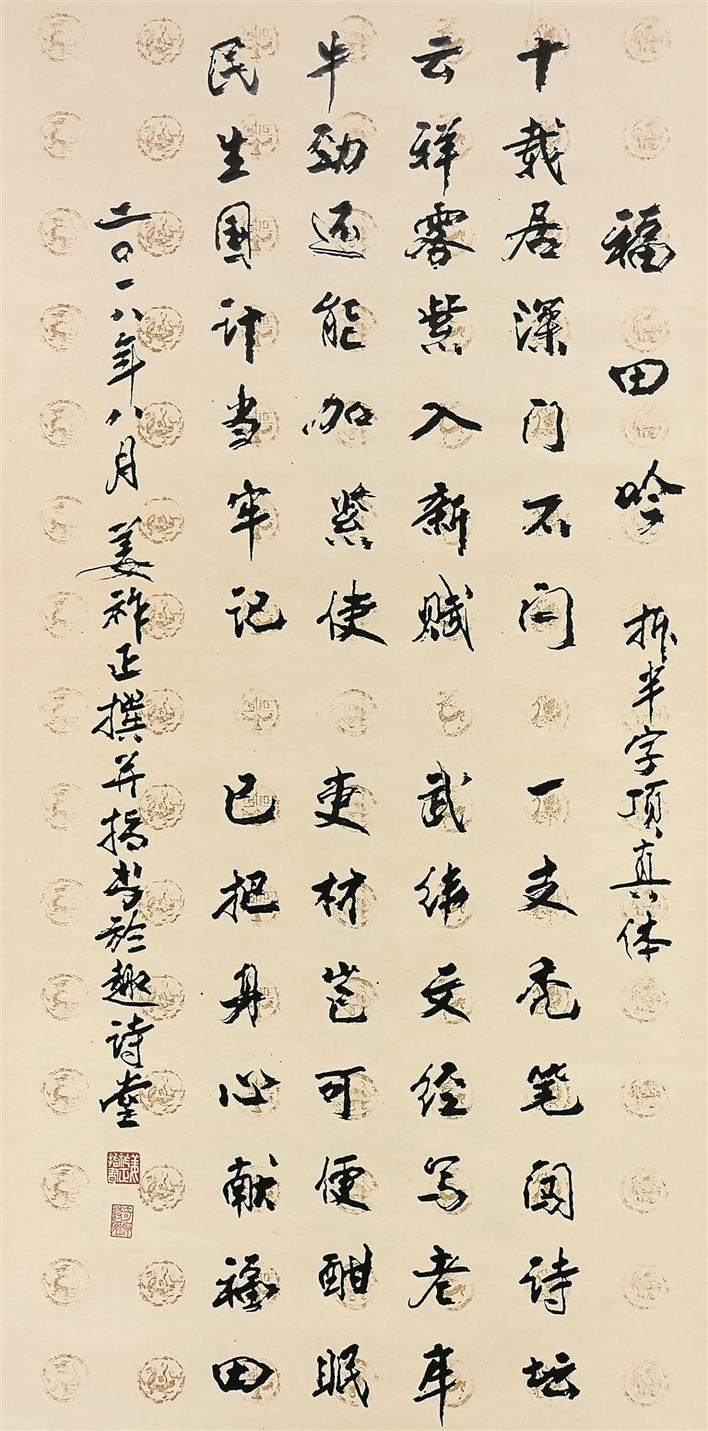 福田吟 拆半字顶真体
十载居深门不闩 一支秃笔闯诗坛
云祥雾紫入新赋 武纬文经写老年
牛劲还能加紧使 吏材岂可便酣眠
民生国计当牢记 已把身心献福田
二〇一八年八月姜祚正撰并指书於趣诗堂